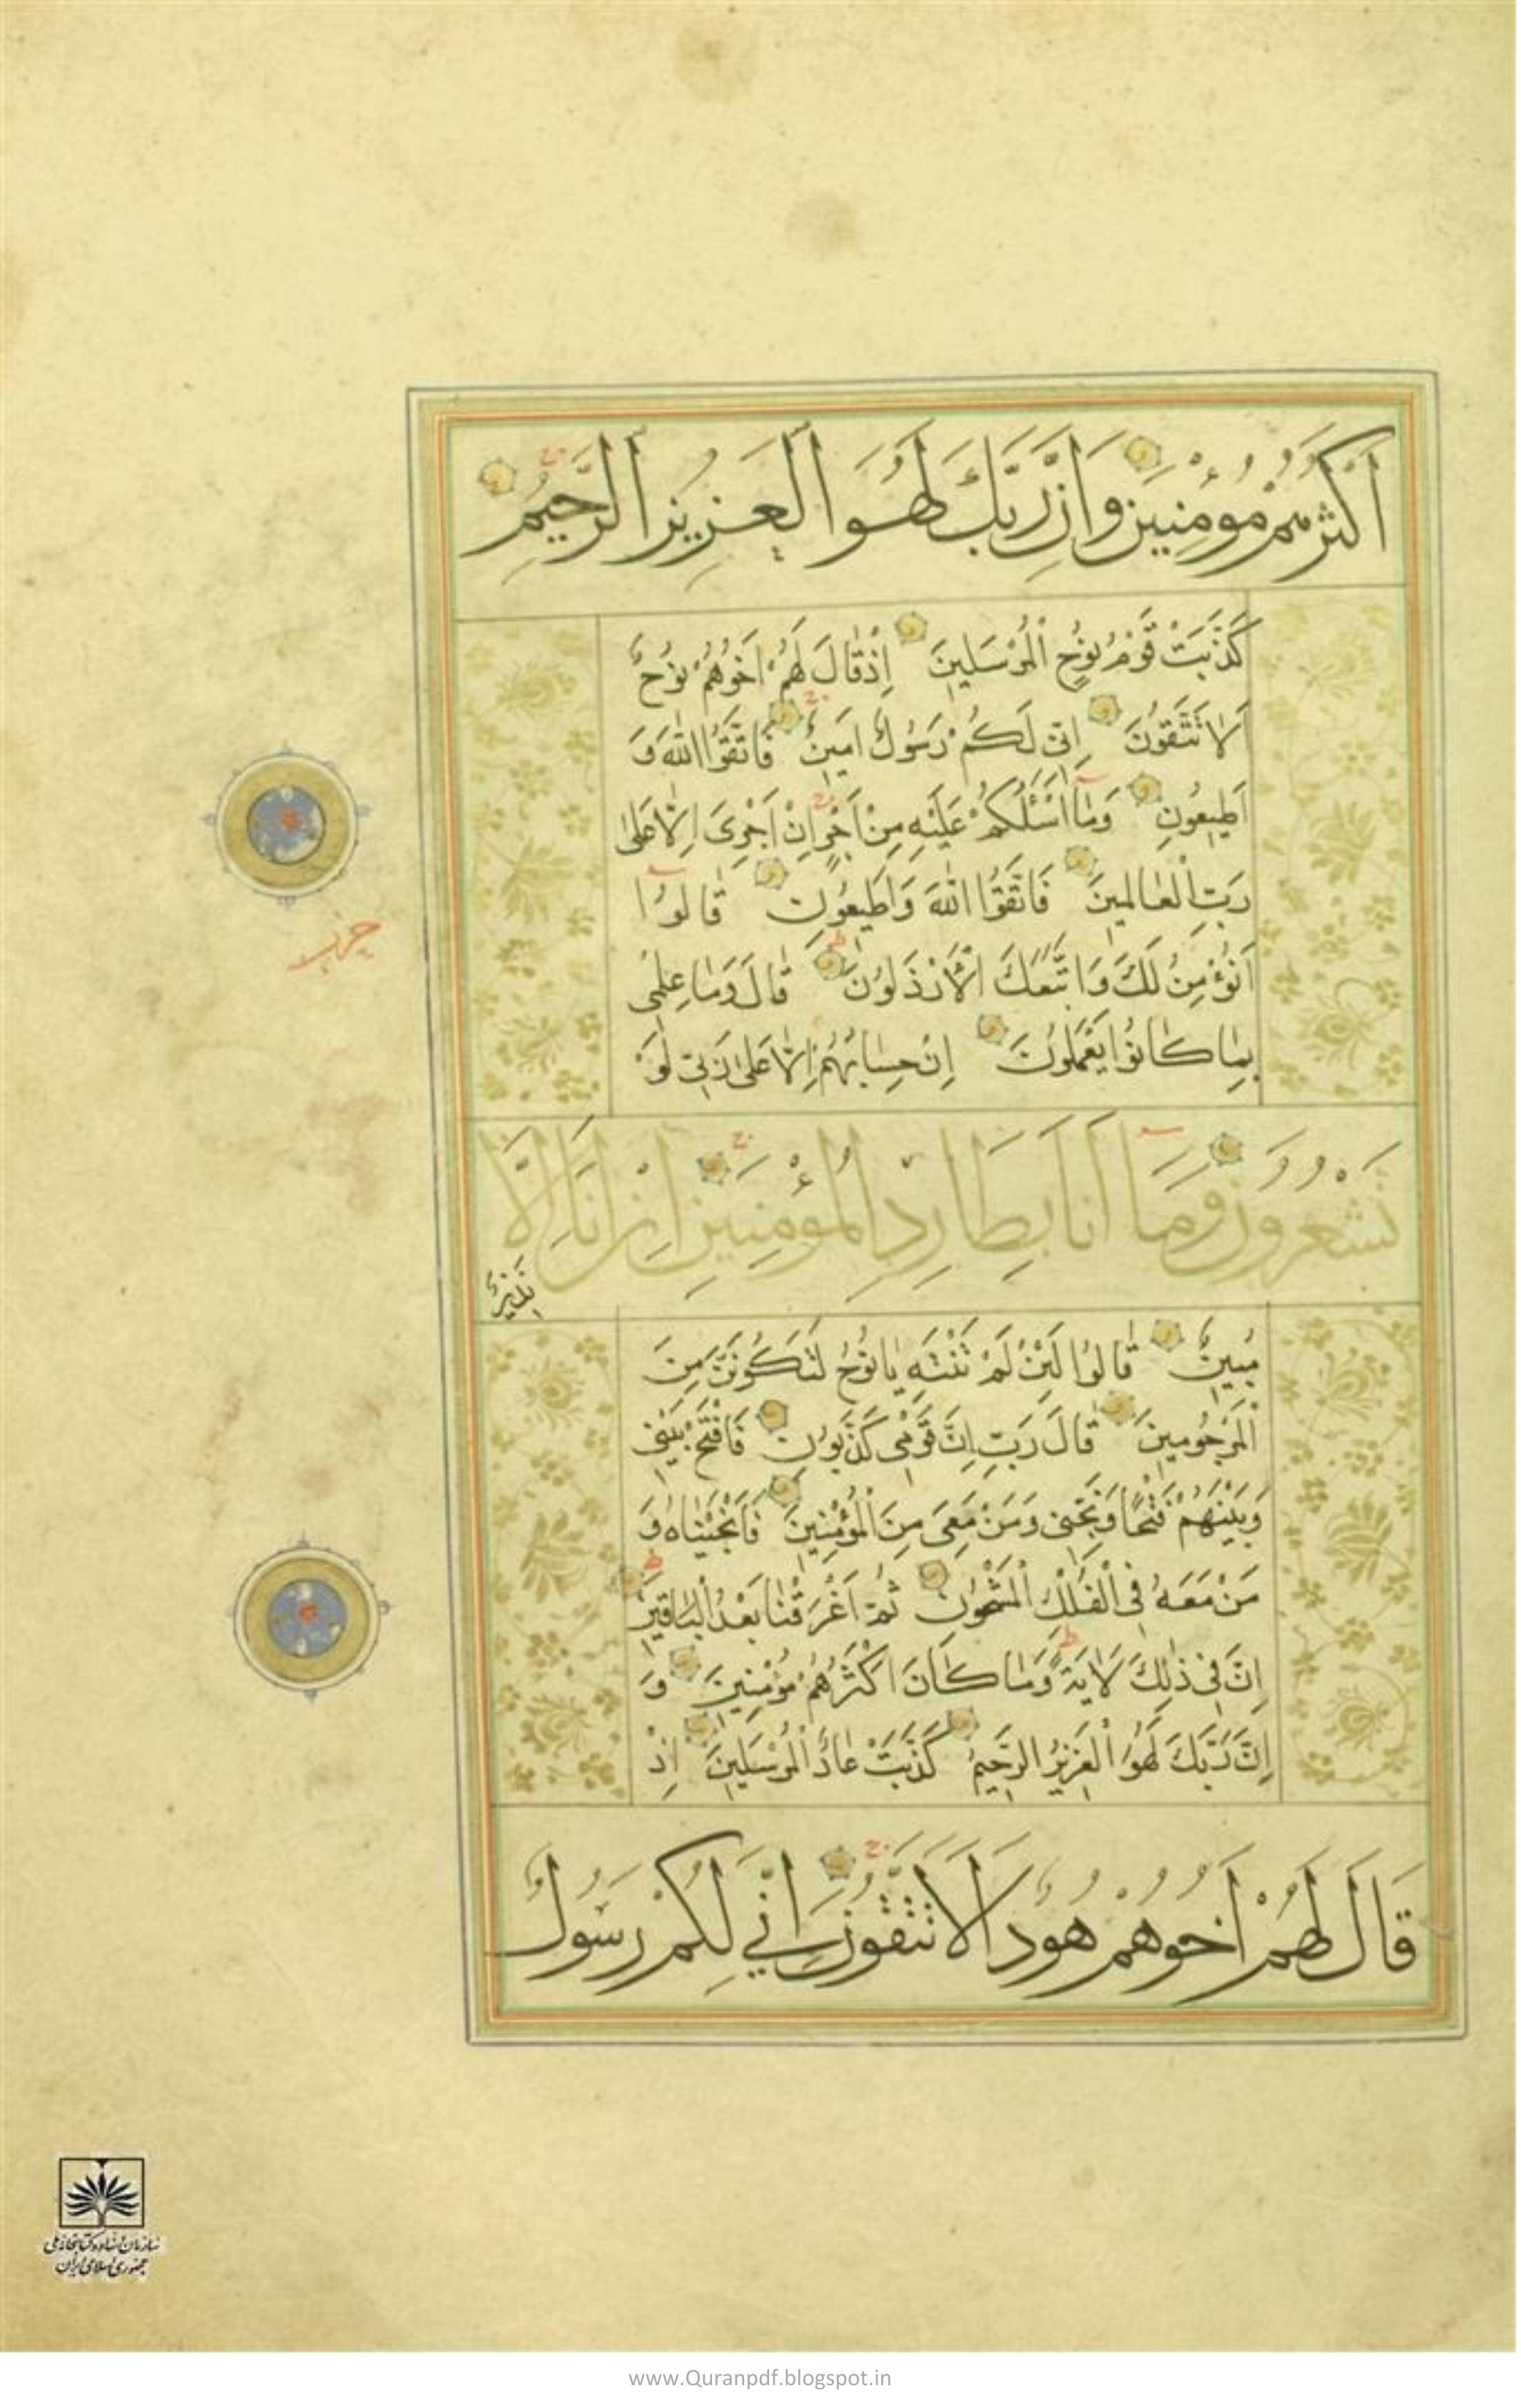 اَكْثَرُهُمْ مُؤْمِنِينَ وَاِنَّ رَبَّكَ لَهُوَ الْعَزِيزُ الرَّحِيمُ
كَذَّبَتْ قَوْمُ نُوحٍ الْمُرْسَلِينَ اِذْ قَالَ لَهُمْ اَخُوهُمْ نُوحٌ
اَلَا تَتَّقُونَ اِنِّى لَكُمْ رَسُولٌ اَمِينٌ فَاتَّقُوا اللّٰهَ وَ
اَطِيعُونِ وَمَا اَسْئَلُكُمْ عَلَيْهِ مِنْ اَجْرٍ اِنْ اَجْرِىَ اِلَّا عَلٰى
رَبِّ الْعَالَمِينَ فَاتَّقُوا اللّٰهَ وَاَطِيعُونِ قَالُوا
اَنُؤْمِنُ لَكَ وَاتَّبَعَكَ الْاَرْذَلُونَ قَالَ وَمَا عِلْمِى
بِمَا كَانُوا يَعْمَلُونَ اِنْ حِسَابُهُمْ اِلَّا عَلٰى رَبِّى لَوْ
تَشْعُرُونَ وَمَا اَنَا بِطَارِدِ الْمُؤْمِنِينَ اِنْ اَنَا اِلَّا
نَذِيرٌ
مُبِينٌ قَالُوا لَئِنْ لَمْ تَنْتَهِ يَا نُوحُ لَتَكُونَنَّ مِنَ
الْمَرْجُومِينَ قَالَ رَبِّ اِنَّ قَوْمِى كَذَّبُونِ فَافْتَحْ بَيْنِى
وَبَيْنَهُمْ فَتْحًا وَنَجِّنِى وَمَنْ مَعِىَ مِنَ الْمُؤْمِنِينَ فَاَنْجَيْنَاهُ وَ
مَنْ مَعَهُ فِى الْفُلْكِ الْمَشْحُونِ ثُمَّ اَغْرَقْنَا بَعْدُ الْبَاقِينَ
اِنَّ فِى ذٰلِكَ لَاٰيَةً وَمَا كَانَ اَكْثَرُهُمْ مُؤْمِنِينَ وَ
اِنَّ رَبَّكَ لَهُوَ الْعَزِيزُ الرَّحِيمُ كَذَّبَتْ عَادٌ الْمُرْسَلِينَ اِذْ
قَالَ لَهُمْ اَخُوهُمْ هُودٌ اَلَا تَتَّقُونَ اِنِّي لَكُمْ رَسُولٌ
حزب
سازمان اسناد و کتابخانه ملی
جمهوری اسلامی ایران
www.Quranpdf.blogspot.in